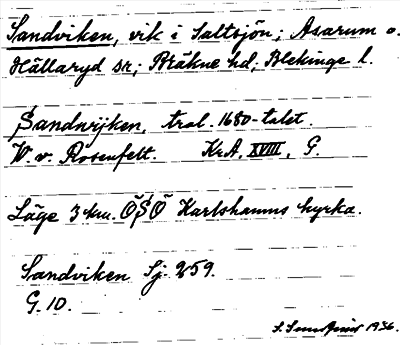 Sandviken, vik i Saltsjön; Asarum o.
Hällaryd snr; Bräkne hd; Blekinge l.
Sandwijken, trol. 1680-talet.
W. v. Rosenfelt. KrA, XVIII, G.
Läge 3 km. ÖSÖ Karlshamns kyrka.
Sandviken Sj. 259.
G. 10.
1936.